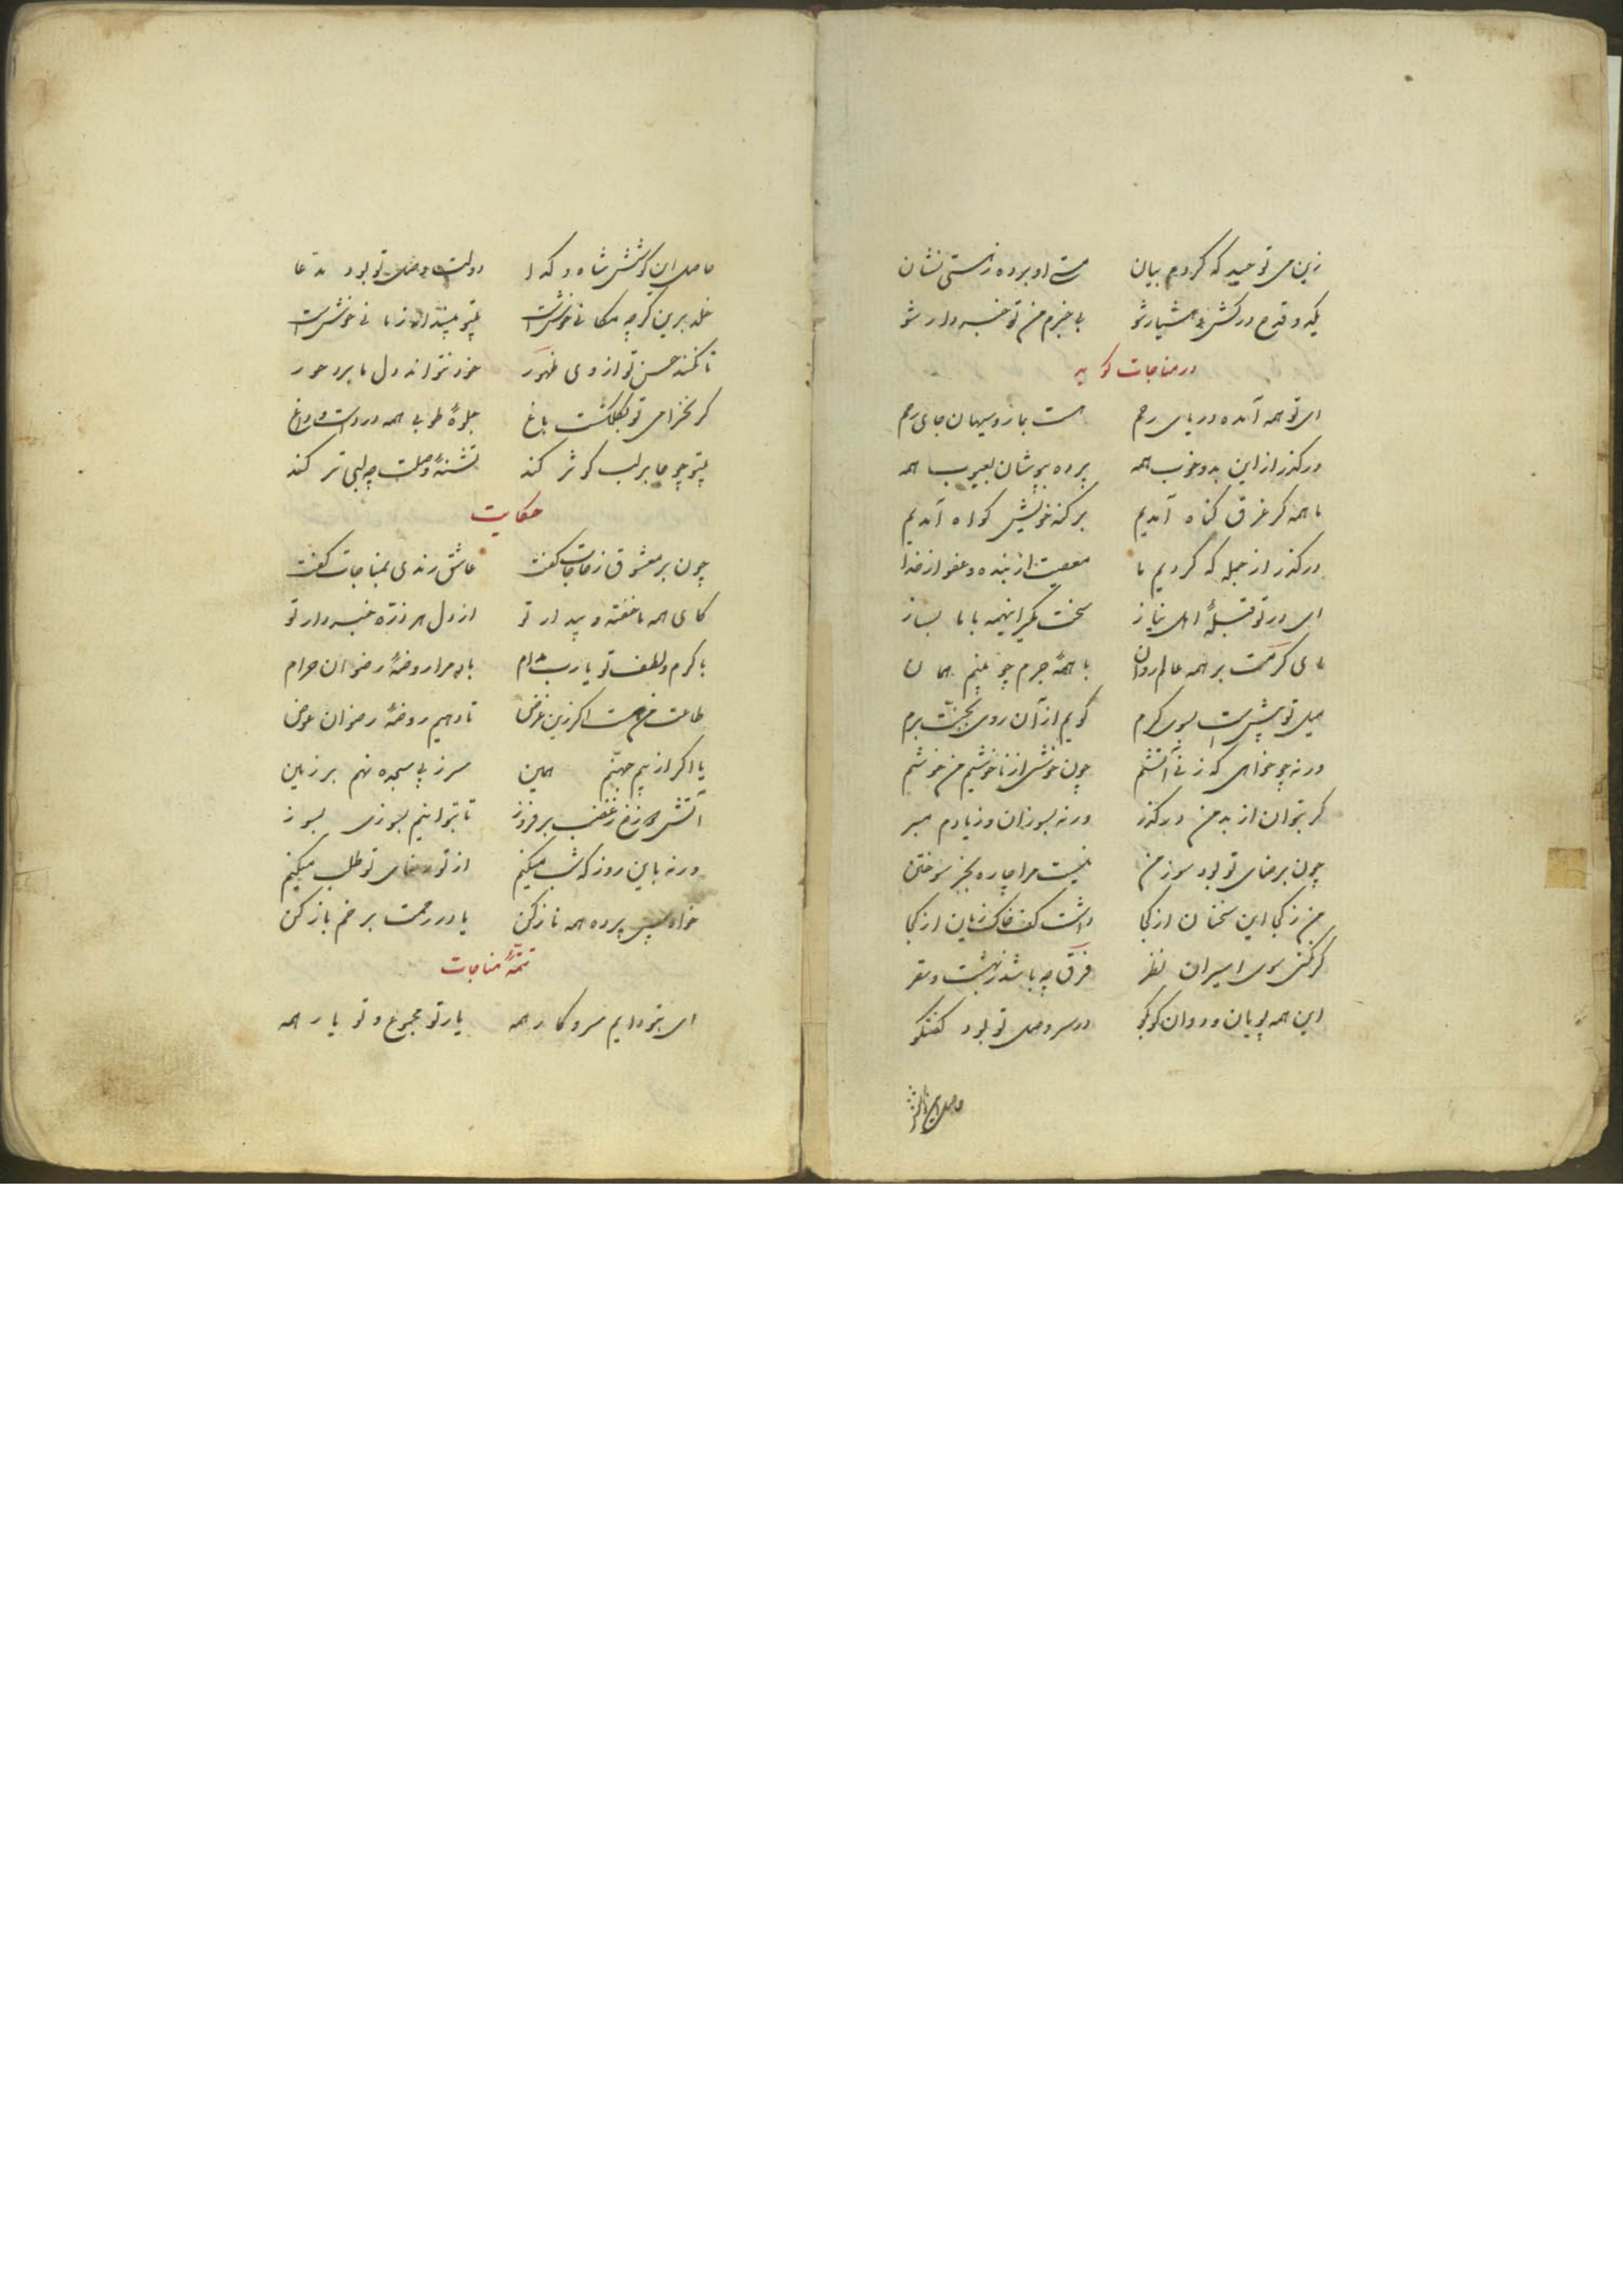 زین می توحید که کردم بیان    مستی او برده ز هستی نشان
یک دو قدح درکش و هشیار شو    بیخبرم من تو خبردار شو
در مناجات گوید
ای تو همه آمده دریای رحم    هست بما روسیهان جای رحم
درگذر از این بد و خوب همه    پرده بپوشان بعیوب همه
ما همه گر غرق گناه آمدیم    بر گنه خویش گواه آمدیم
درگذر از جمله که کردیم ما    معصیت از بنده و عفو از خدا
ای در تو قبلهٔ اهل نیاز    سخت مگیر اینهمه با ما بساز
ای کرمت بر همه عالم روان    با همه جرم چو منم همان
میل تو پیش است بسوی کرم    گویم از آن روی بجنت برم
ورنه چو خواهی که زنی آتشم    چون خوشی از ناخوشیم من خوشم
گر بتوان از بد من درگذر    ورنه بسوزان و ز یادم مبر
چون برضای تو بود سوز من    نیست مرا چاره بجز سوختن
من ز کجا این سخنان از کجا    داشت کف خاک زبان از کجا
گر نکنی سوی اسیران نظر    فرق چه باشد ز بهشت و سقر
این همه پویان و دوان کو بکو    در سر وصل تو بود گفتگو
حاصل این کوشش
حاصل این کوشش شاه و گدا    دولت وصل تو بود مدعا
خلد برین گرچه مکانی خوش است    بیتو مپندار زمانی خوش است
تا نکند حسن تو از وی ظهور    خود نتواند دل ما برد حور
گر نخرامی تو بگلگشت باغ    جلوهٔ طوبی همه درد است و داغ
بیتو چو جا بر لب کوثر کند    تشنهٔ وصلت چه لبی تر کند
حکایت
چون بر معشوق ز حاجات گفت    عاشق رندی بمناجات گفت
کای همه ما خفته و بیدار تو    از دل هر ذره خبردار تو
با کرم و لطف تو یا رب مدام    باد مرا روضهٔ رضوان حرام
طاعت من هست اگر زین غرض    تا دهیم روضهٔ رضوان عوض
یا اگر از بیم جهنم همین    سر ز پی سجده نهم بر زمین
آتش دوزخ ز غضب برفروز    تا بتوانیم بسوزی بسوز
ورنه باین روز که شب میکنیم    از تو رضای تو طلب میکنیم
خواه پس پرده همه ناز کن    یا در رحمت برخم باز کن
تتمهٔ مناجات
ای بتو دایم سر و کار همه    یار تو مجموع و تو یار همه